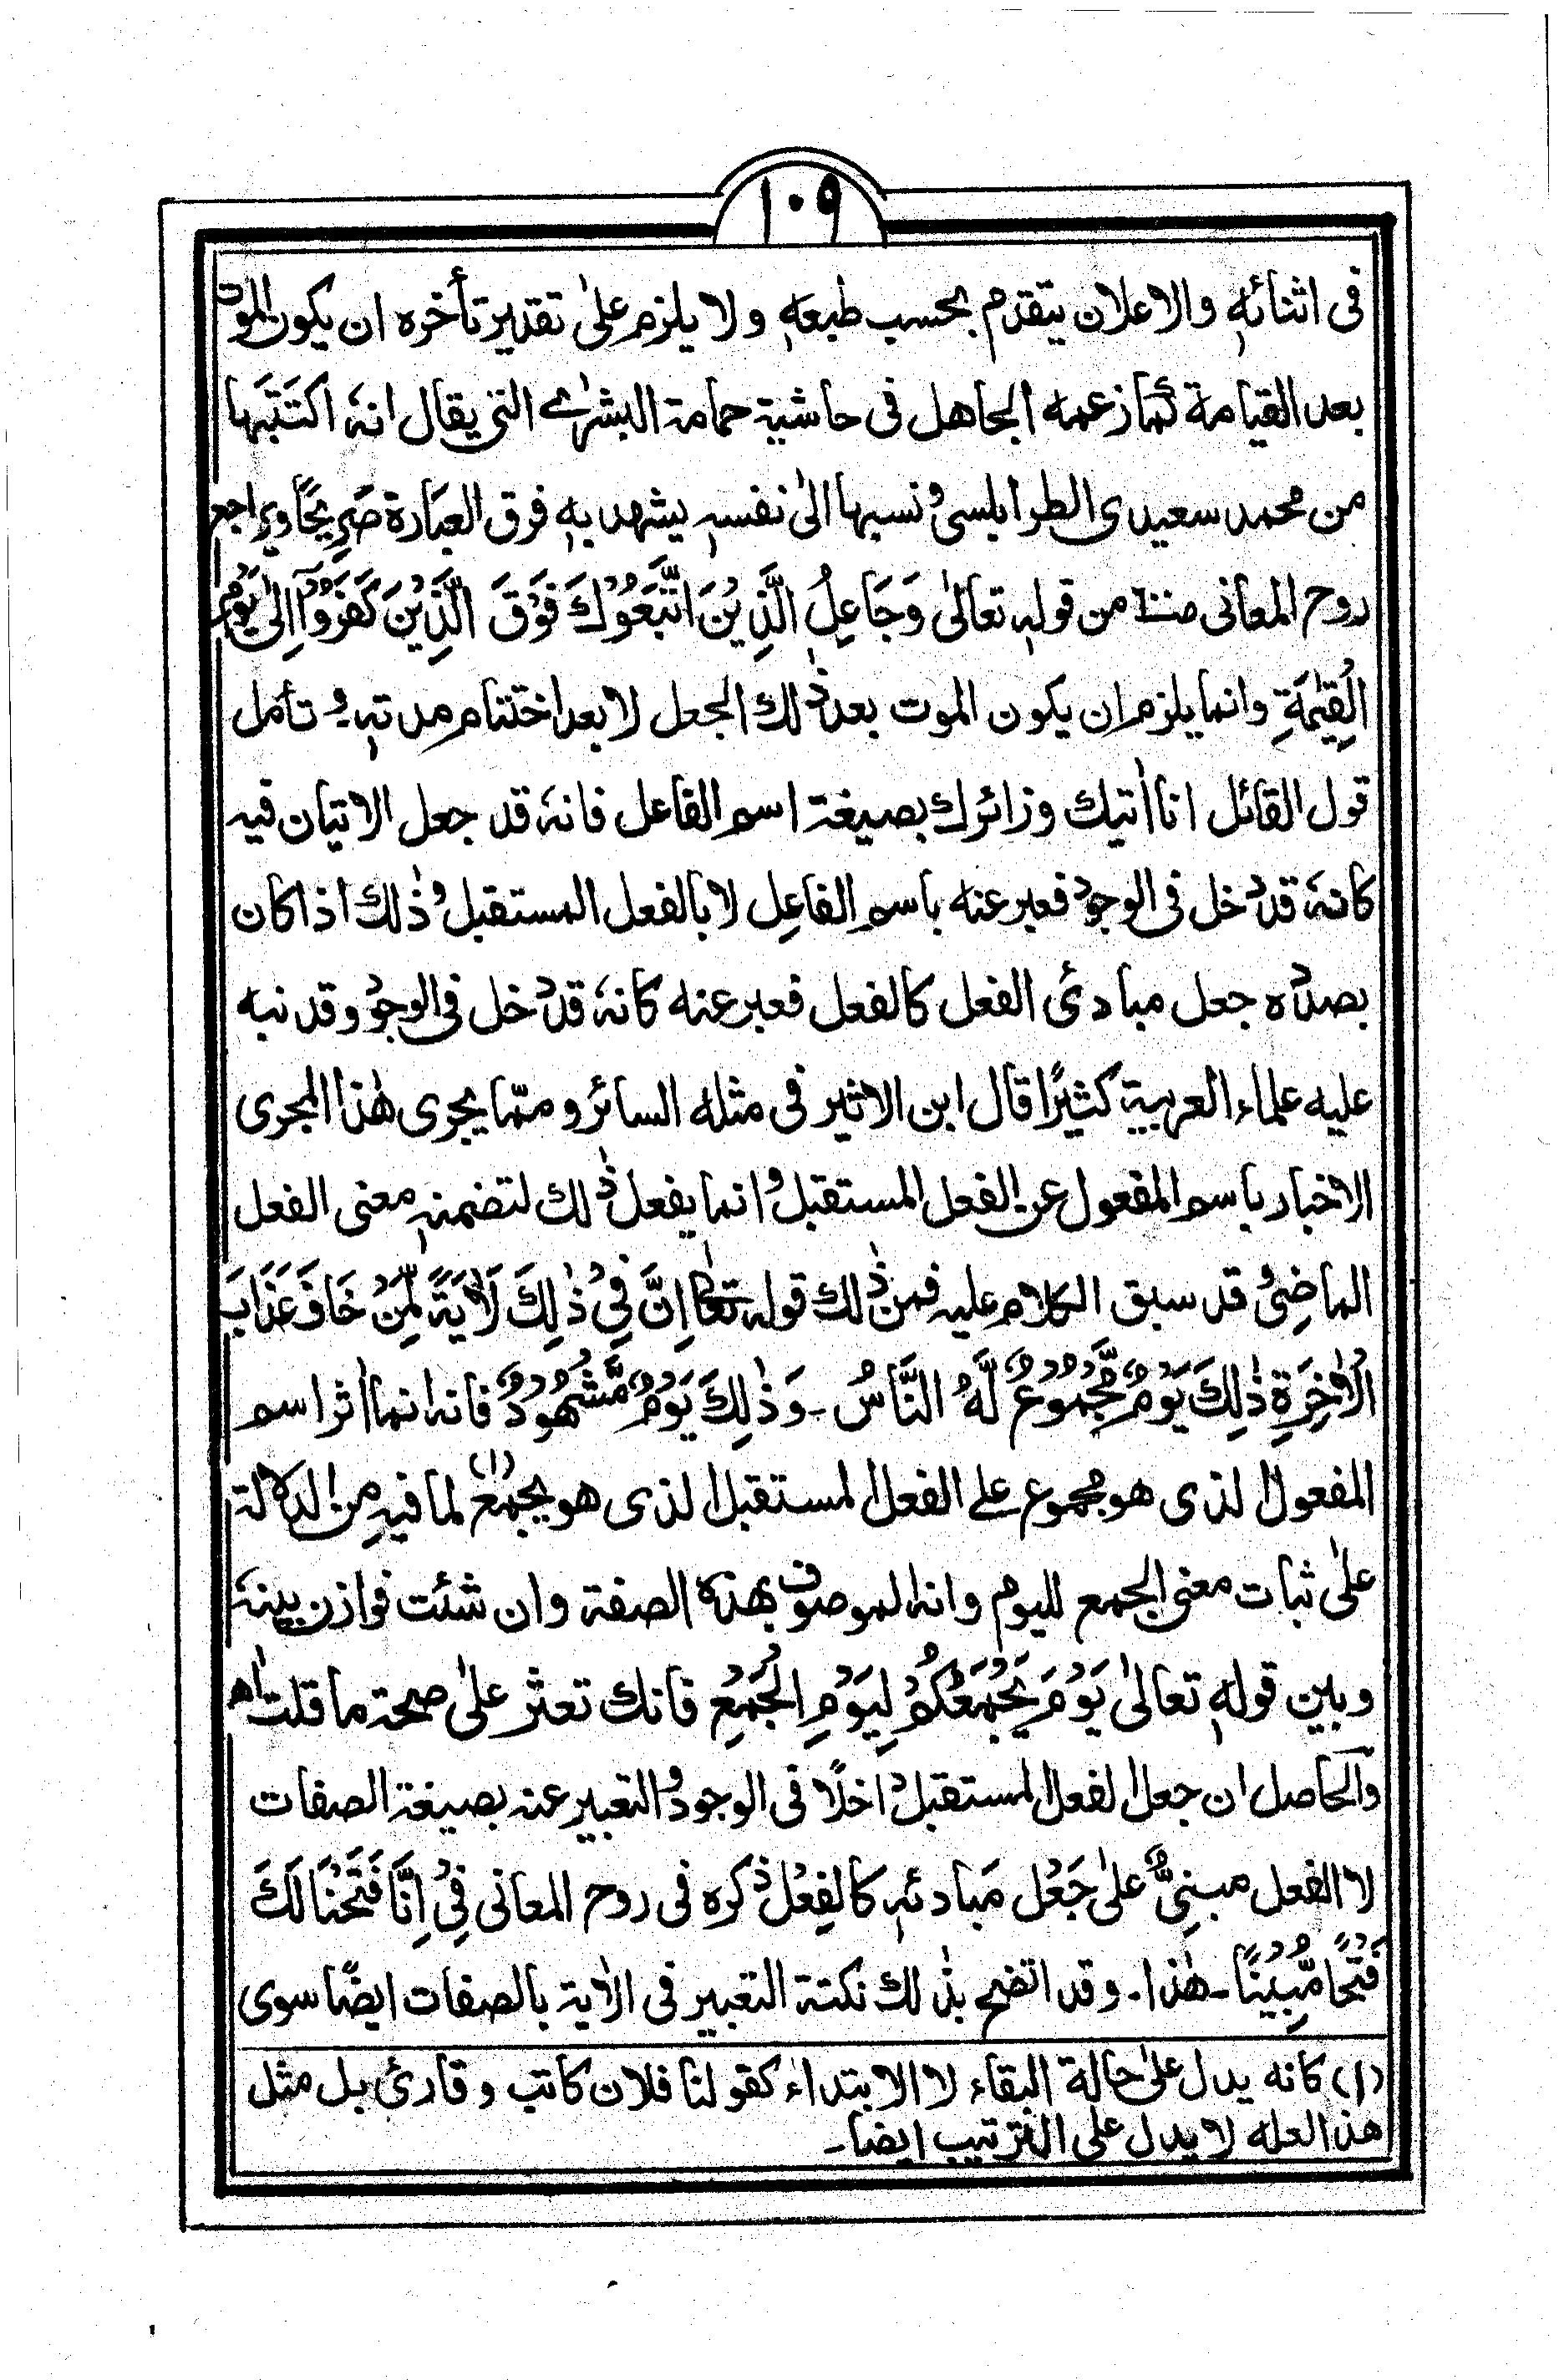 ١٠٩
فى اثنائه والاعلان يتقدم بحسب طبعه ولا يلزم على تقدير تأخره ان يكون الموت
بعد القيامة كما زعمه الجاهل فى حاشية حمامة البشرٰے التى يقال انهٗ اكتَتَبَها
من محمد سعيدى الطرابلسى ونسبها الىٰ نفسهٖ يشهد بهٖ فرق العبارة صَرِيحًا ويراجع
روح المعانى من قولهٖ تعالىٰ وَجَاعِلُ الَّذِيْنَ اتَّبَعُوْكَ فَوْقَ الَّذِيْنَ كَفَرُوْٓا اِلىٰ يَوْمِ
الْقِيٰمَةِ وانما يلزم ان يكون الموت بعد ذٰلك الجعل لا بعد اختتام مدتهٖ و تأمل
قول القائل انا اٰتيك وزائرك بصيغة اسم الفاعل فانهٗ قد جعل الاتيان فيه
كانهٗ قد دخل فى الوجود فعبر عنه باسم الفاعِل لا بالفعل المستقبل وذٰلك اذا كان
بصدده جعل مبادئ الفعل كالفعل فعبر عنه كانهٗ قد دخل فى الوجود وقد نبه
عليه علماء العربية كثيرًا قال ابن الاثير فى مثله السائر و ممّا يجرى هٰذا المجرى
الاخبار باسم المفعول عن الفعل المستقبل وانما يفعل ذٰلك لتضمنهٖ معنى الفعل
الماضِى وقد سبق الكلام عليه فمن ذٰلك قوله تعالىٰ اِنَّ فِيْ ذٰلِكَ لَاٰيَةً لِّمَنْ خَافَ عَذَابَ
الْاٰخِرَةِ ذٰلِكَ يَوْمٌ مَّجْمُوْعٌ لَّهُ النَّاسُ ۔ وَذٰلِكَ يَوْمٌ مَّشْهُوْدٌ فانه انما اٰثر اسم
المفعول الذى هو مجموع علے الفعل المستقبل الذى هو يجمع (١) لما فيهِ مِن الدلالة
علىٰ ثبات معنى الجمع لليوم وانه الموصوف بهذه الصفة وان شئت فوازن بينهٗ
وبين قولهٖ تعالىٰ يَوْمَ يَجْمَعُكُمْ لِيَوْمِ الْجَمْعِ فانك تعثر علىٰ صحة ما قلت اھ
والحاصل ان جعل الفعل المستقبل داخلًا فى الوجود والتعبير عنه بصيغة الصفات
لا الفعل مبنِىٌّ علىٰ جَعْل مَبادئهٖ كالفِعْل ذكره فى روح المعانى فِيْ اِنَّا فَتَحْنَا لَكَ
فَتْحًا مُّبِيْنًا ۔ هٰذا ۔ وقد اتضح بذٰلك نكتة التعبير فى الاٰية بالصفات ايضًا سوى
(١) كانه يدل علىٰ حالة البقاء لا الابتداء كقولنا فلان كاتب وقارئ بل مثل
هذا لعله لا يدل على الترتيب ايضا ۔